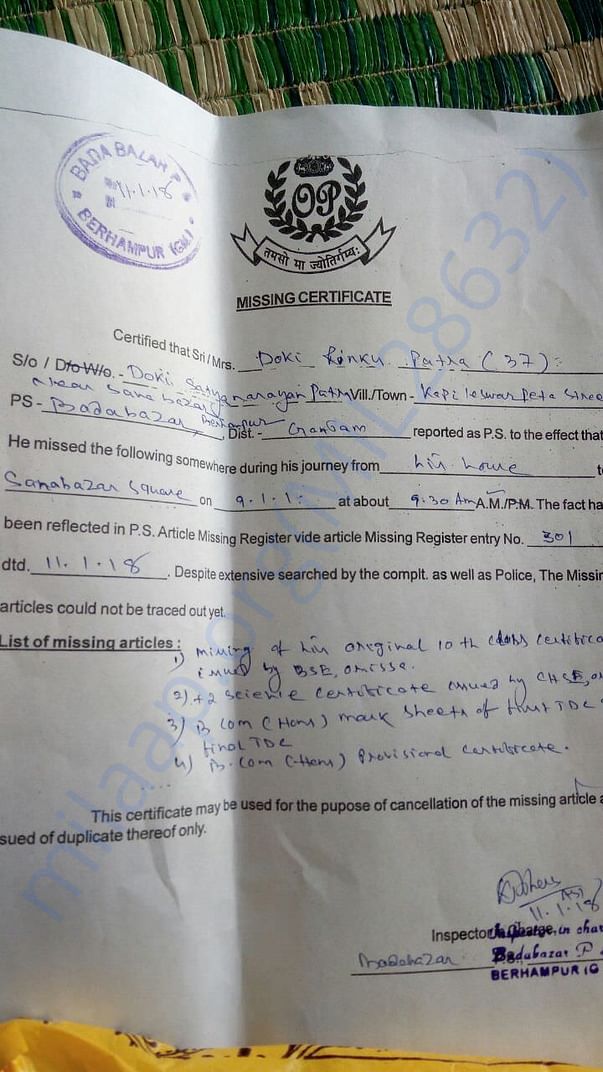 BADA BAZAR P.S
11.1.18
BERHAMPUR (GM)
OP
तमसो मा ज्योतिर्गमयः
MISSING CERTIFICATE
Certified that Sri / Mrs. Doki Rinku Patra (37)
S/o / D/o W/o. - Doki Satyanarayan Patra Vill./Town - Kapileswarpeta Stree
Near Sanabazar
PS - Badabazar, Berhampur Dist. - Ganjam reported as P.S. to the effect that
He missed the following somewhere during his journey from his house t
Sanabazar Square on 9.1.1 at about 9.30 Am A.M./P.M. The fact ha
been reflected in P.S. Article Missing Register vide article Missing Register entry No. 301
dtd. 11.1.18. Despite extensive searched by the complt. as well as Police, The Missin
articles could not be traced out yet.
List of missing articles :
1) missing of his original 10th class certifica
issued by BSE, Orissa.
2) +2 science certificate issued by CHSE, or
3) B Com (Hons) mark sheets of first TDC
final TDC
4) B.Com (Hons) Provisional certificate.
This certificate may be used for the pupose of cancellation of the missing article a
sued of duplicate thereof only.
ASI
11.1.18
Inspector in Charge, in char
Badabazar P.S. Badabazar P
BERHAMPUR (G
milaap.org(MIL28632)